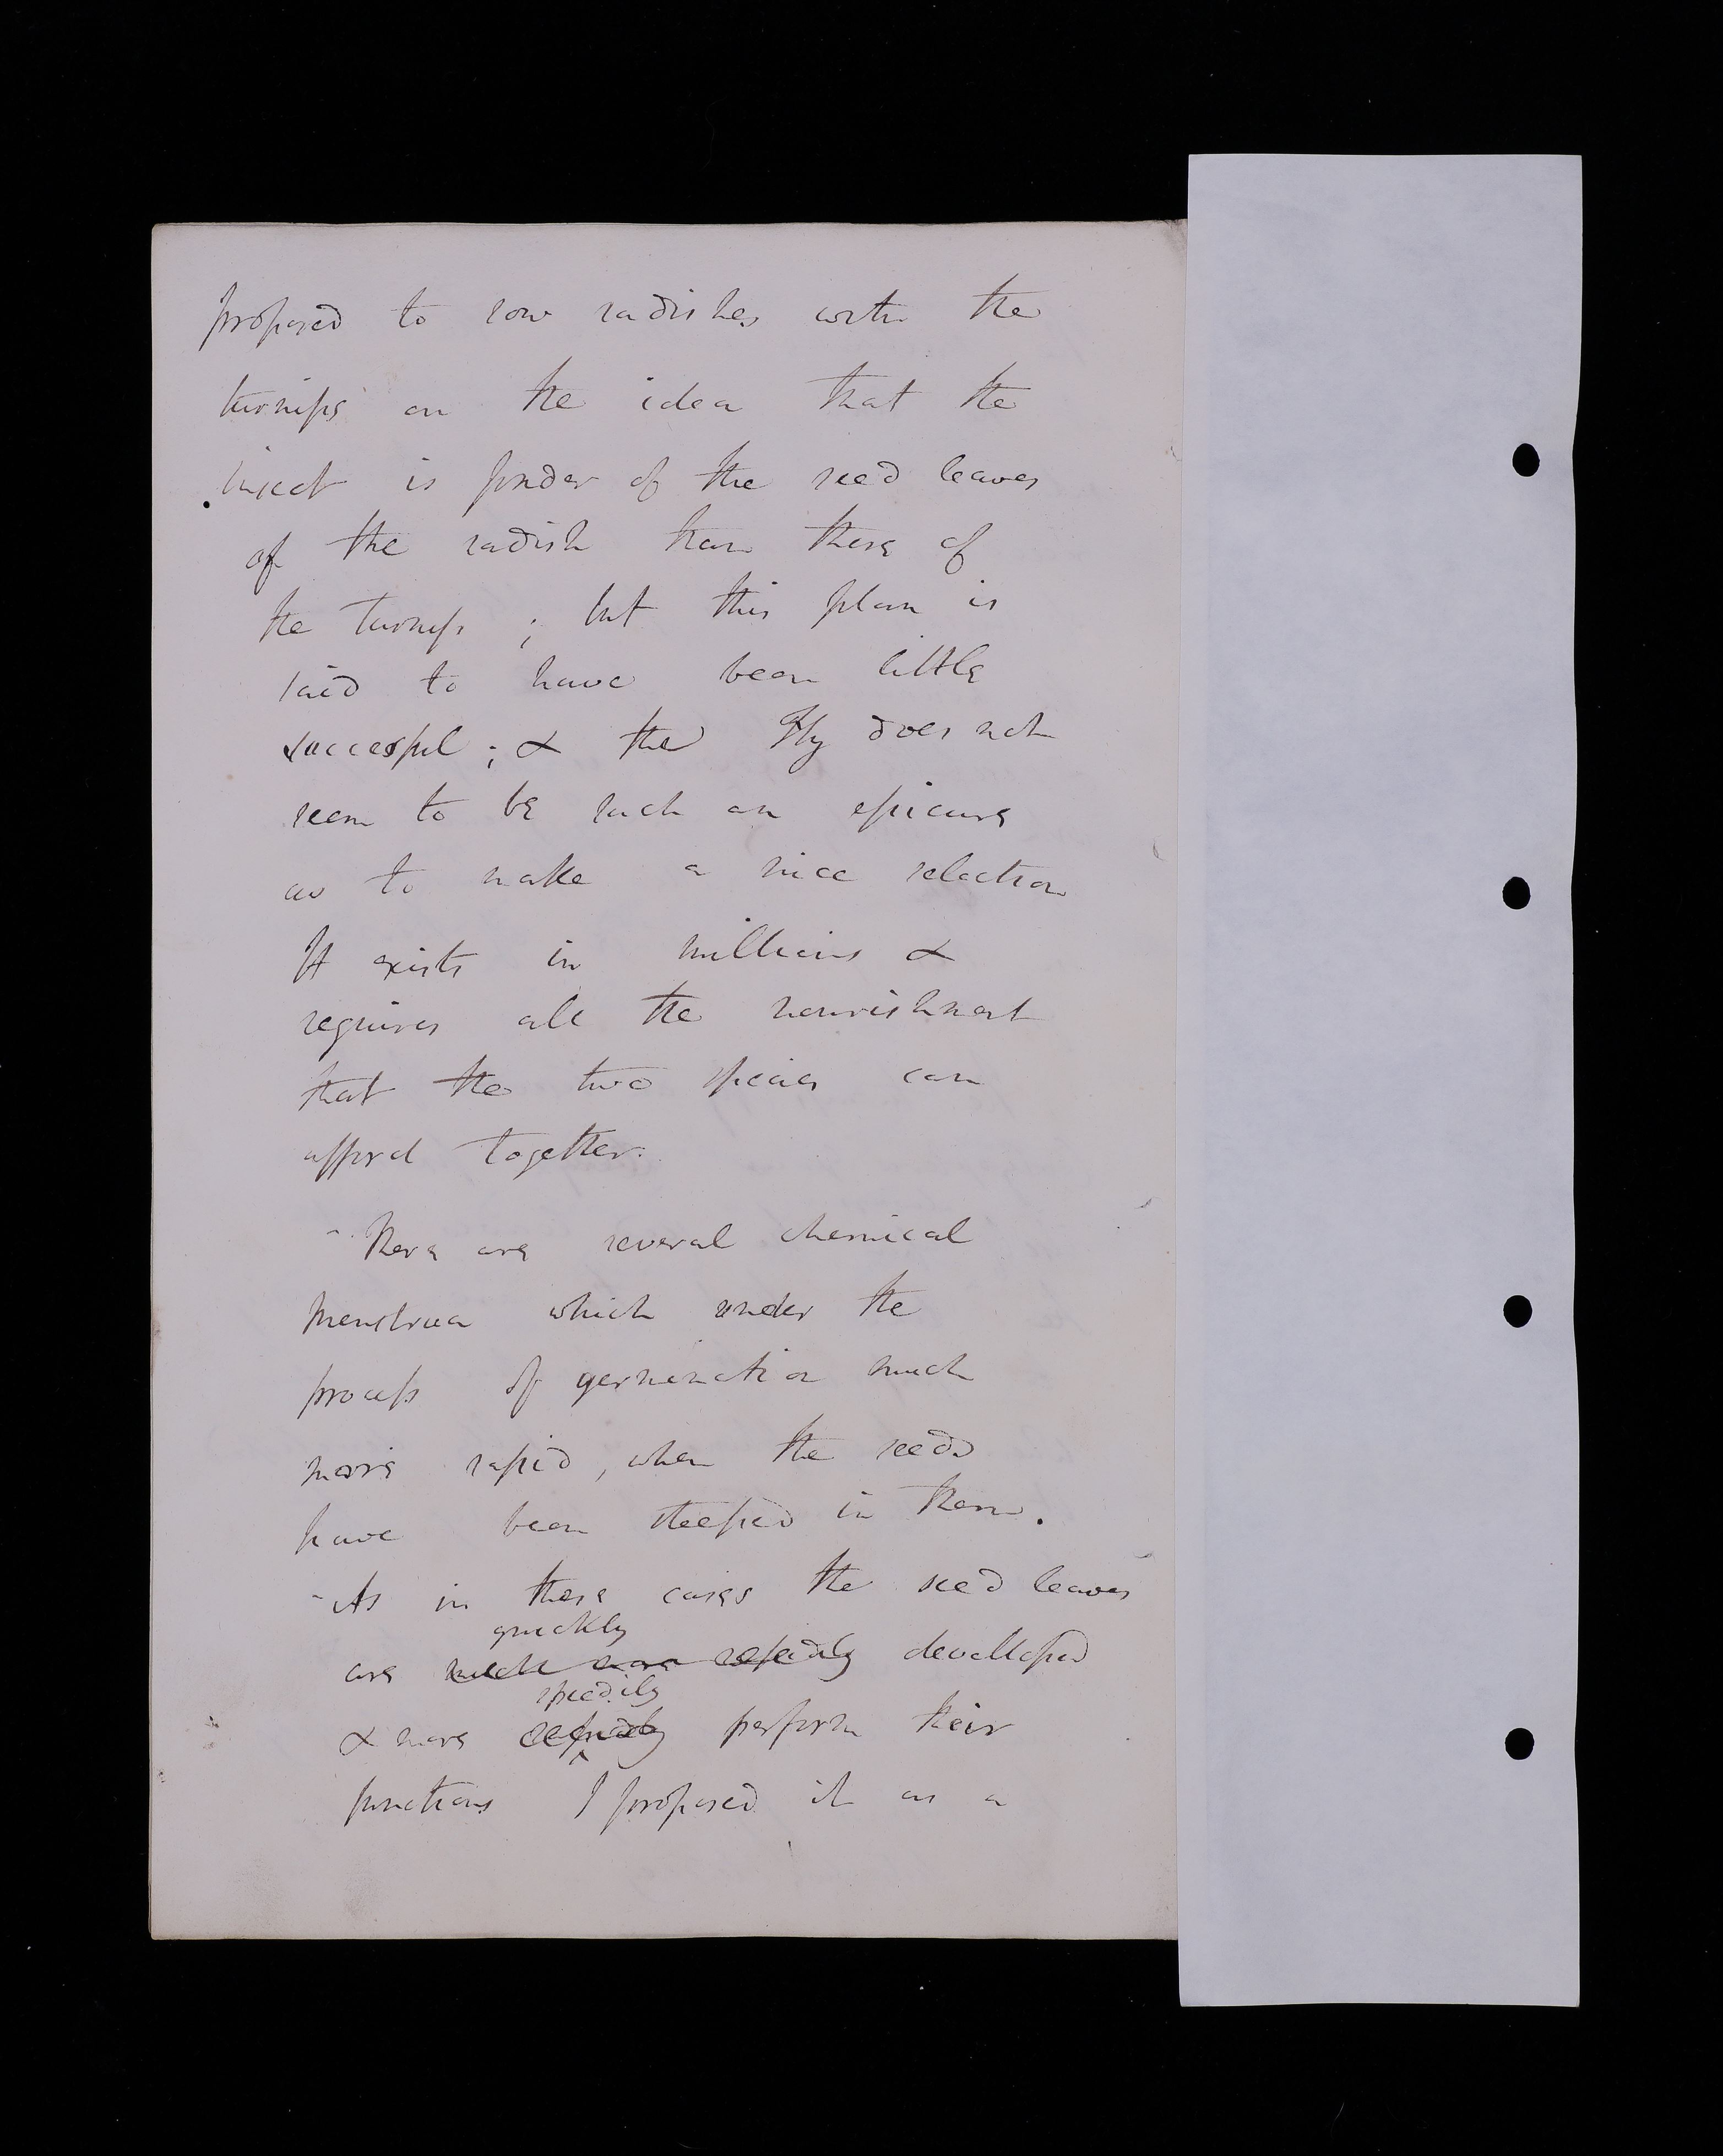 proposed to sow radishes with the
turnips on the idea that the
insect is fonder of the seed leaves
of the radish than those of
the turnip ; but this plan is
said to have been little
successful ; & the Fly does not
seem to be such an epicure
as to make a nice selection
It exists in millions &
requires all the nourishment
that the two species can
afford together.
- There are several chemical
menstrua which render the
process of germination much
more rapid, when the seeds
have been steeped in them.
- As in these cases the seed leaves
quickly
are much more rapidly developed
speedily
& more rapidly perform their
functions I proposed it as a